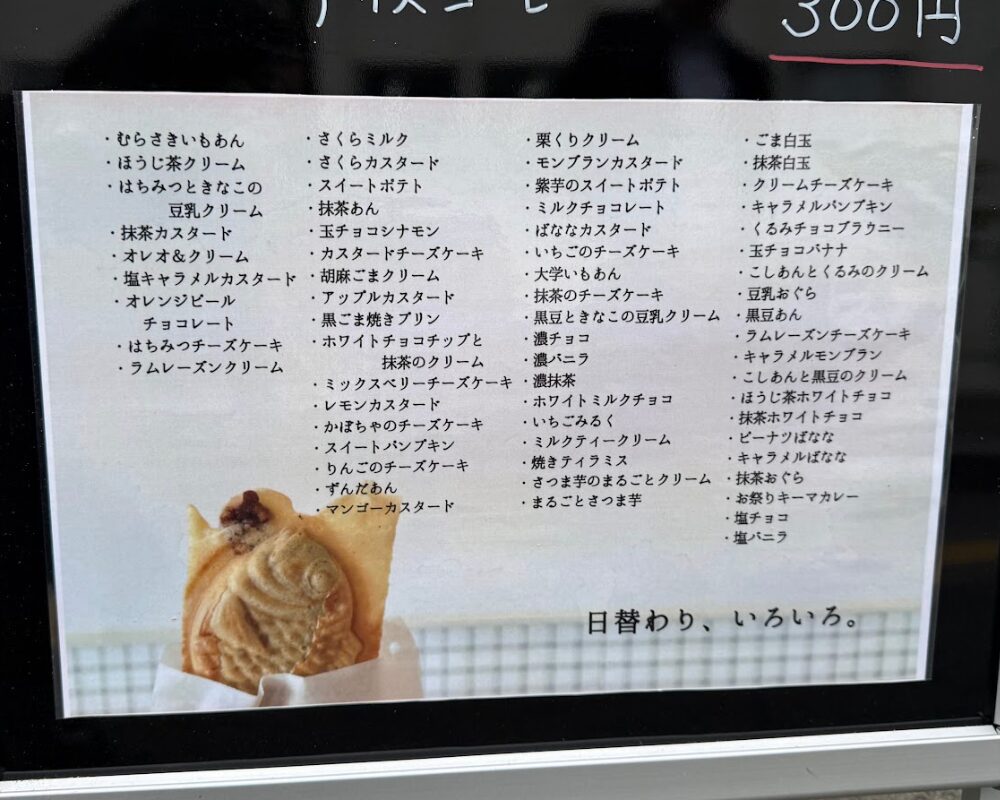 300円
・むらさきいもあん
・ほうじ茶クリーム
・はちみつときなこの
豆乳クリーム
・抹茶カスタード
・オレオ&クリーム
・塩キャラメルカスタード
・オレンジピール
チョコレート
・はちみつチーズケーキ
・ラムレーズンクリーム
・さくらミルク
・さくらカスタード
・スイートポテト
・抹茶あん
・玉チョコシナモン
・カスタードチーズケーキ
・胡麻ごまクリーム
・アップルカスタード
・黒ごま焼きプリン
・ホワイトチョコチップと
抹茶のクリーム
・ミックスベリーチーズケーキ
・レモンカスタード
・かぼちゃのチーズケーキ
・スイートパンプキン
・りんごのチーズケーキ
・ずんだあん
・マンゴーカスタード
・栗くりクリーム
・モンブランカスタード
・紫芋のスイートポテト
・ミルクチョコレート
・ばななカスタード
・いちごのチーズケーキ
・大学いもあん
・抹茶のチーズケーキ
・黒豆ときなこの豆乳クリーム
・濃チョコ
・濃バニラ
・濃抹茶
・ホワイトミルクチョコ
・いちごみるく
・ミルクティークリーム
・焼きティラミス
・さつま芋のまるごとクリーム
・まるごとさつま芋
・ごま白玉
・抹茶白玉
・クリームチーズケーキ
・キャラメルパンプキン
・くるみチョコブラウニー
・玉チョコバナナ
・こしあんとくるみのクリーム
・豆乳おぐら
・黒豆あん
・ラムレーズンチーズケーキ
・キャラメルモンブラン
・こしあんと黒豆のクリーム
・ほうじ茶ホワイトチョコ
・抹茶ホワイトチョコ
・ピーナツばなな
・キャラメルばなな
・抹茶おぐら
・お祭りキーマカレー
・塩チョコ
・塩バニラ
日替わり、いろいろ。